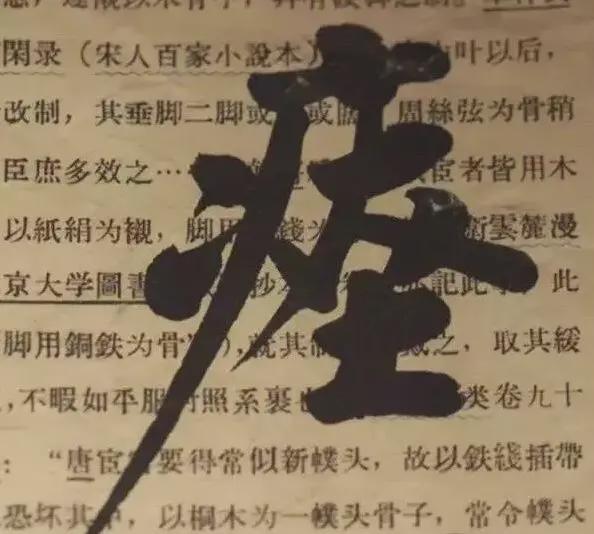 痤
閑录（宋人百家小說本）叶以后，
改制，其垂脚二脚或 或 絲弦为骨稍
臣庶多效之… 宦者皆用木
以紙絹为襯，脚用 雲麓漫
京大学圖書 抄 記此 此
脚用銅鉄为骨"），就其 之，取其緩
，不暇如平服对照系裹也 类卷九十
："唐宦官要得常似新幞头，故以鉄綫插带
恐坏其中，以桐木为一幞头骨子，常令幞头